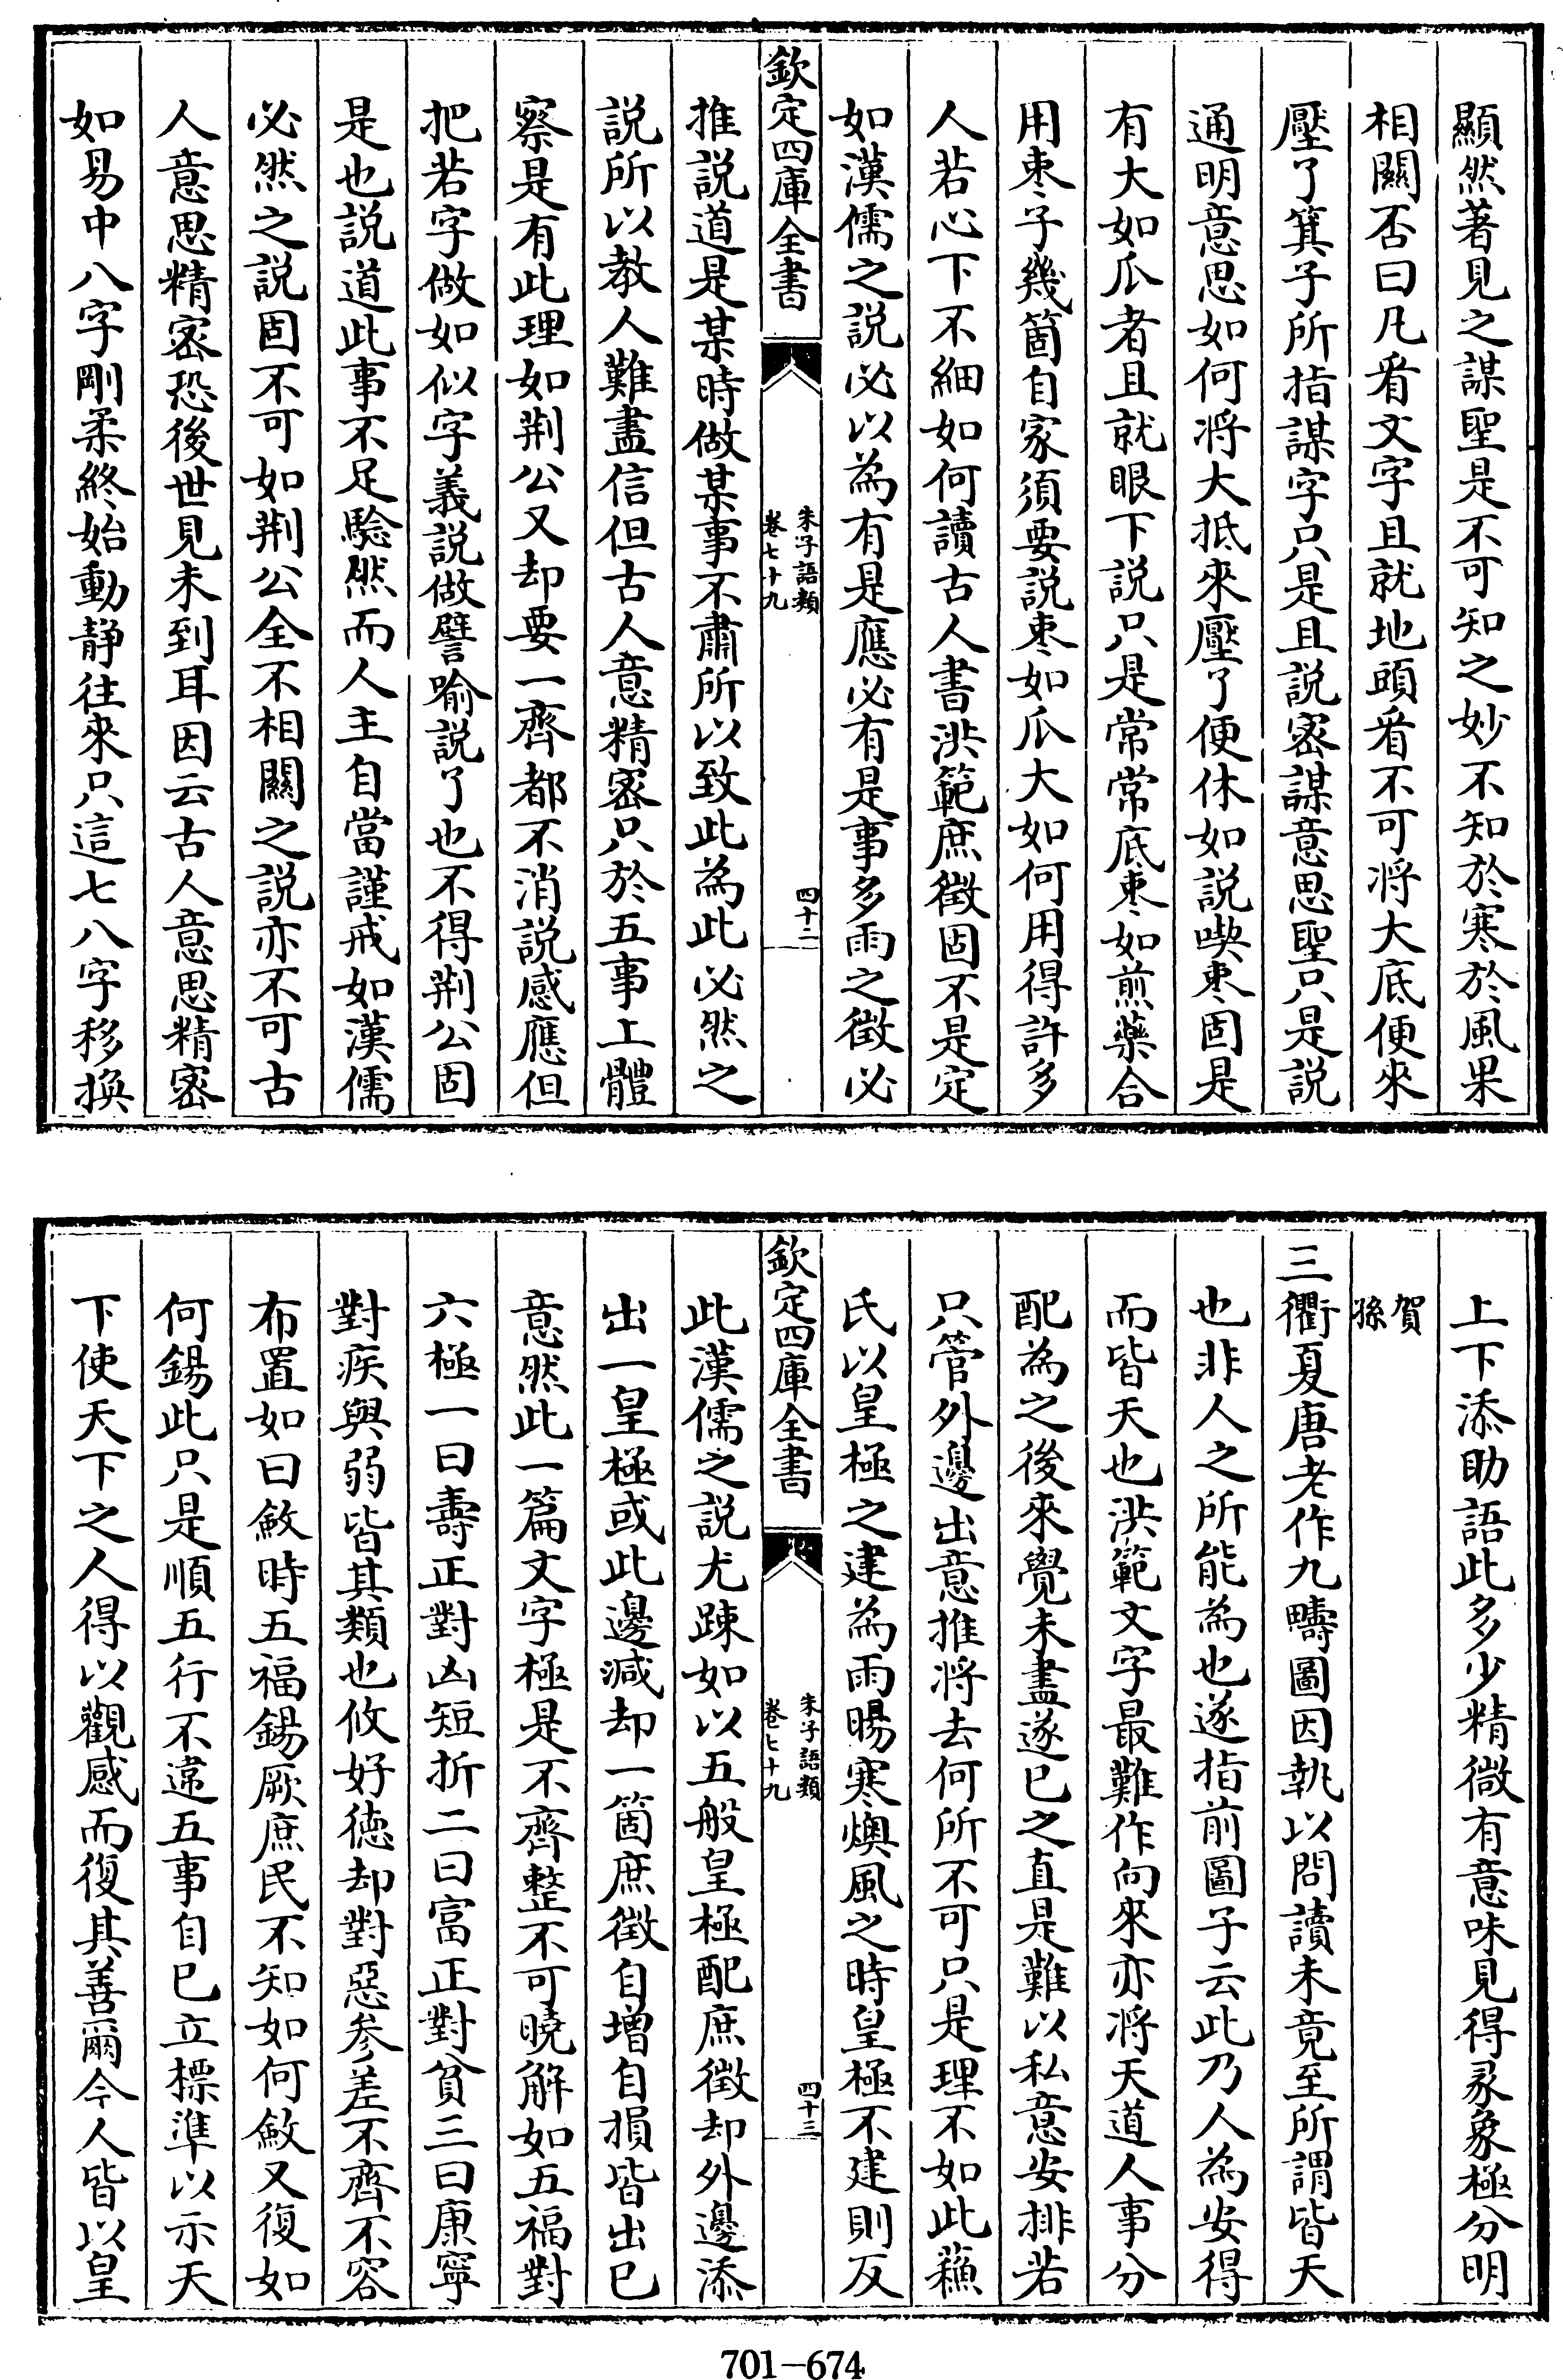 顯然著見之謀聖是不可知之妙不知於寒於風果
相關否曰凡看文字且就地頭看不可將大底便來
壓了箕子所指謀字只是且説密謀意思聖只是説
通明意思如何將大抵來壓了便休如説喫棗固是
有大如瓜者且就眼下説只是常常底棗如煎藥合
用棗子幾箇自家須要説棗如瓜大如何用得許多
人若心下不細如何讀古人書洪範庶徵固不是定
如漢儒之説必以為有是應必有是事多雨之徵必
欽定四庫全書
朱子語類
卷七十九
四十二
推説道是某時做某事不肅所以致此為此必然之
説所以教人難盡信但古人意精密只於五事上體
察是有此理如荆公又却要一齊都不消説感應但
把若字做如似字義説做譬喻説了也不得荆公固
是也説道此事不足驗然而人主自當謹戒如漢儒
必然之説固不可如荆公全不相關之説亦不可古
人意思精密恐後世見未到耳因云古人意思精密
如易中八字剛柔終始動静往來只這七八字移換
上下添助語此多少精微有意味見得彖象極分明
賀
孫
三衢夏唐老作九疇圖因執以問讀未竟至所謂皆天
也非人之所能為也遂指前圖子云此乃人為安得
而皆天也洪範文字最難作向來亦將天道人事分
配為之後來覺未盡遂已之直是難以私意安排若
只管外邊出意推將去何所不可只是理不如此蘇
氏以皇極之建為雨暘寒燠風之時皇極不建則反
欽定四庫全書
朱子語類
卷七十九
四十三
此漢儒之説尤踈如以五般皇極配庶徵却外邊添
出一皇極或此邊減却一箇庶徵自增自損皆出已
意然此一篇文字極是不齊整不可曉解如五福對
六極一曰壽正對凶短折二曰富正對貧三曰康寧
對疾與弱皆其類也攸好徳却對惡參差不齊不容
布置如曰斂時五福錫厥庶民不知如何斂又復如
何錫此只是順五行不違五事自已立標準以示天
下使天下之人得以觀感而復其善爾今人皆以皇
701-674